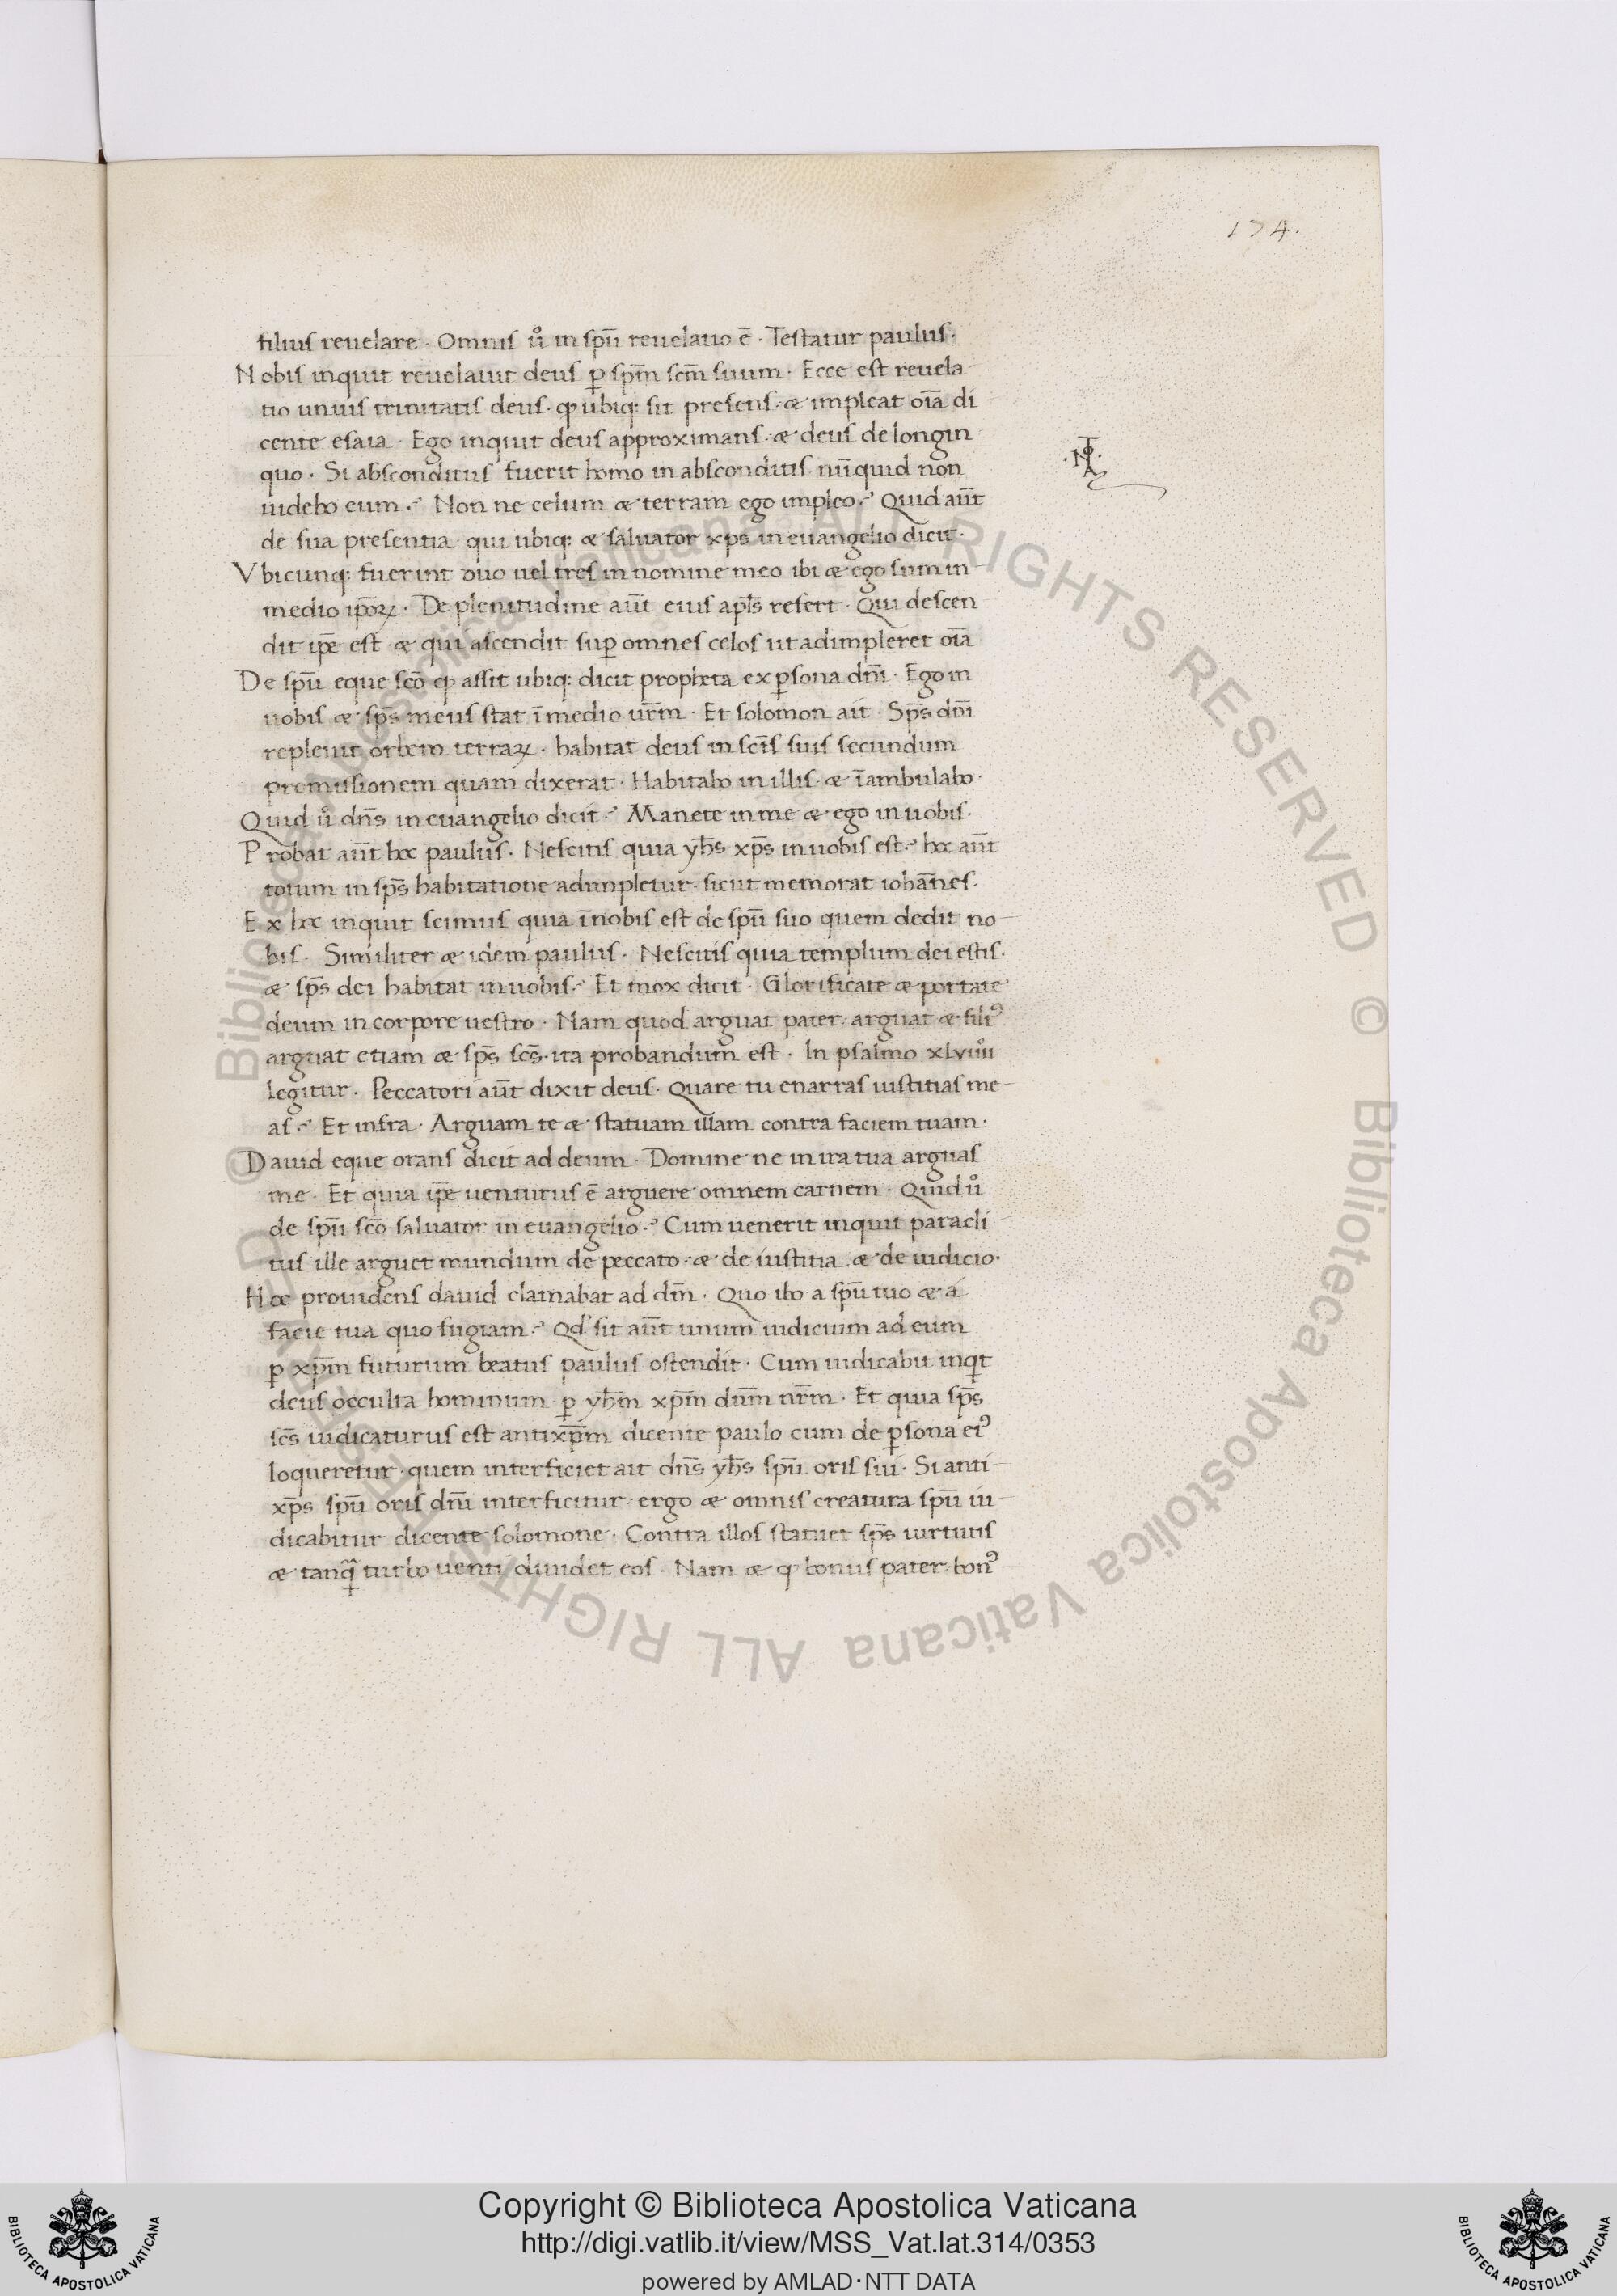 174.
filius reuelare · Omnis uͦ in spū reuelatio ē · Testatur paulus ·
Nobis inquit reuelauit deus ꝑ spm̄ scm̄ suum · Ecce est reuela
tio unius trinitatis deus · ꝙ ubiq: sit presens · æ impleat oīa di
cente esaia · Ego inquit deus approximans · æ deus de longin
quo · Si absconditus fuerit homo in absconditis nūquid non
uidebo eum ·? Non ne celum æ terram ego impleo ·? Quid aūt
de sua presentia · qui ubiq: æ saluator xps in euangelio dicit ·
Vbicunq: fuerint duo uel tres in nomine meo ibi æ ego sum in
medio ipōꝝ · De plenitudine aūt eius apls̄ refert · Qui descen
dit ip̄e est æ qui ascendit suꝑ omnes celos ut adimpleret oīa
De spū eque scō ꝙ assit ubiq: dicit propheta ex ꝑsona dnī · Ego in
uobis æ sps̄ meus stat ī medio urm̄ · Et solomon ait · Sps̄ dnī
repleuit orbem terraꝝ · habitat deus in scīs suis secundum
promissionem quam dixerat · Habitabo in illis · æ īambulabo ·
Quid uͦ dns̄ in euangelio dicit ·? Manete in me æ ego in uobis ·
Probat aūt hoc paulus · Nescitis quia yhs̄ xps̄ in uobis est ·? hoc aūt
totum in sps̄ habitatione adimpletur · sicut memorat iohānes ·
Ex hoc inquit scimus quia ī nobis est de spū suo quem dedit no
bis · Similiter æ idem paulus · Nescitis quia templum dei estis ·
æ sps̄ dei habitat in uobis ·? Et mox dicit · Glorificate æ portate
deum in corpore uestro · Nam quod arguat pater · arguat æ filiꝰ
arguat etiam æ sps̄ scs̄ · ita probandum est · In psalmo xlviiii
legitur · Peccatori aūt dixit deus · Quare tu enarras iustitias me
as ·? Et infra · Arguam te æ statuam illam contra faciem tuam ·
Dauid eque orans dicit ad deum · Domine ne in ira tua arguas
me · Et quia ip̄e uenturus ē arguere omnem carnem · Quid uͦ
de spū scō saluator in euangelio ·? Cum uenerit inquit paracli
tus ille arguet mundum de peccato · æ de iustitia æ de iudicio ·
Hoc prouidens dauid clamabat ad dm̄ · Quo ibo a spū tuo æ a
facie tua quo fugiam ·? Qd' sit aūt unum iudicium ad eum
ꝑ xpm̄ futurum beatus paulus ostendit · Cum iudicabit inqt
deus occulta hominum · ꝑ yhm̄ xpm̄ dnm̄ nrm̄ · Et quia sps̄
scs̄ iudicaturus est antixpm̄ dicente paulo cum de ꝑsona eiꝰ
loqueretur · quem interficiet ait dns̄ yhs̄ spū oris sui · Si anti
xps̄ spū oris dnī interficitur · ergo æ omnis creatura spū iu
dicabitur dicente solomone · Contra illos statuet sps̄ uirtutis
æ tanq̄ turbo uenti diuidet eos · Nam æ ꝙ bonus pater · bonꝰ
Copyright © Biblioteca Apostolica Vaticana
http://digi.vatlib.it/view/MSS_Vat.lat.314/0353
powered by AMLAD·NTT DATA
BIBLIOTECA APOSTOLICA VATICANA
BIBLIOTECA APOSTOLICA VATICANA
© Biblioteca Apostolica Vaticana ALL RIGHTS RESERVED
© Biblioteca Apostolica Vaticana ALL RIGHTS RESERVED